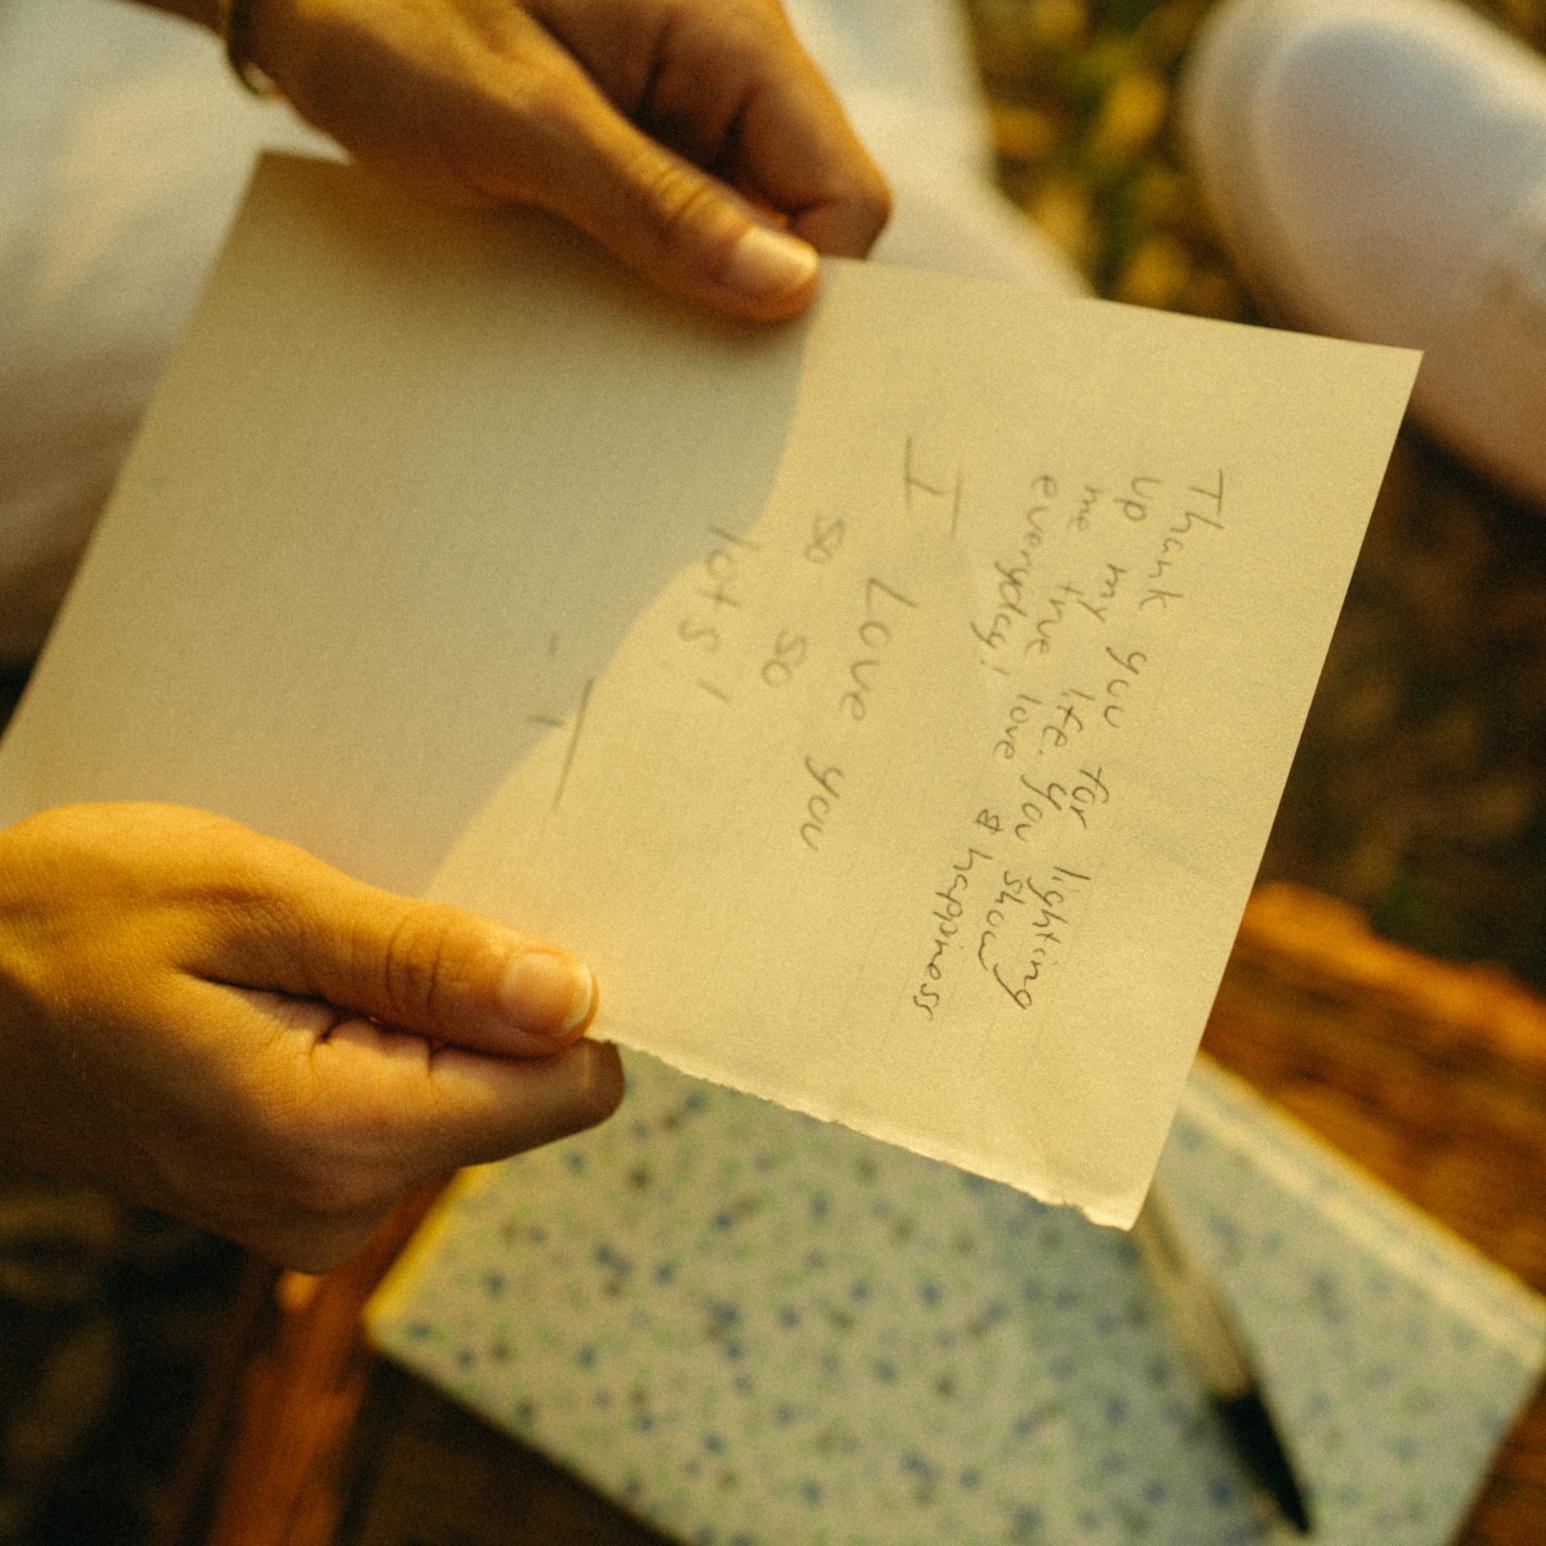 Thank you for lighting
up my life. you show
me true love & happiness
everyday!
I Love you
so so
lots!
- I